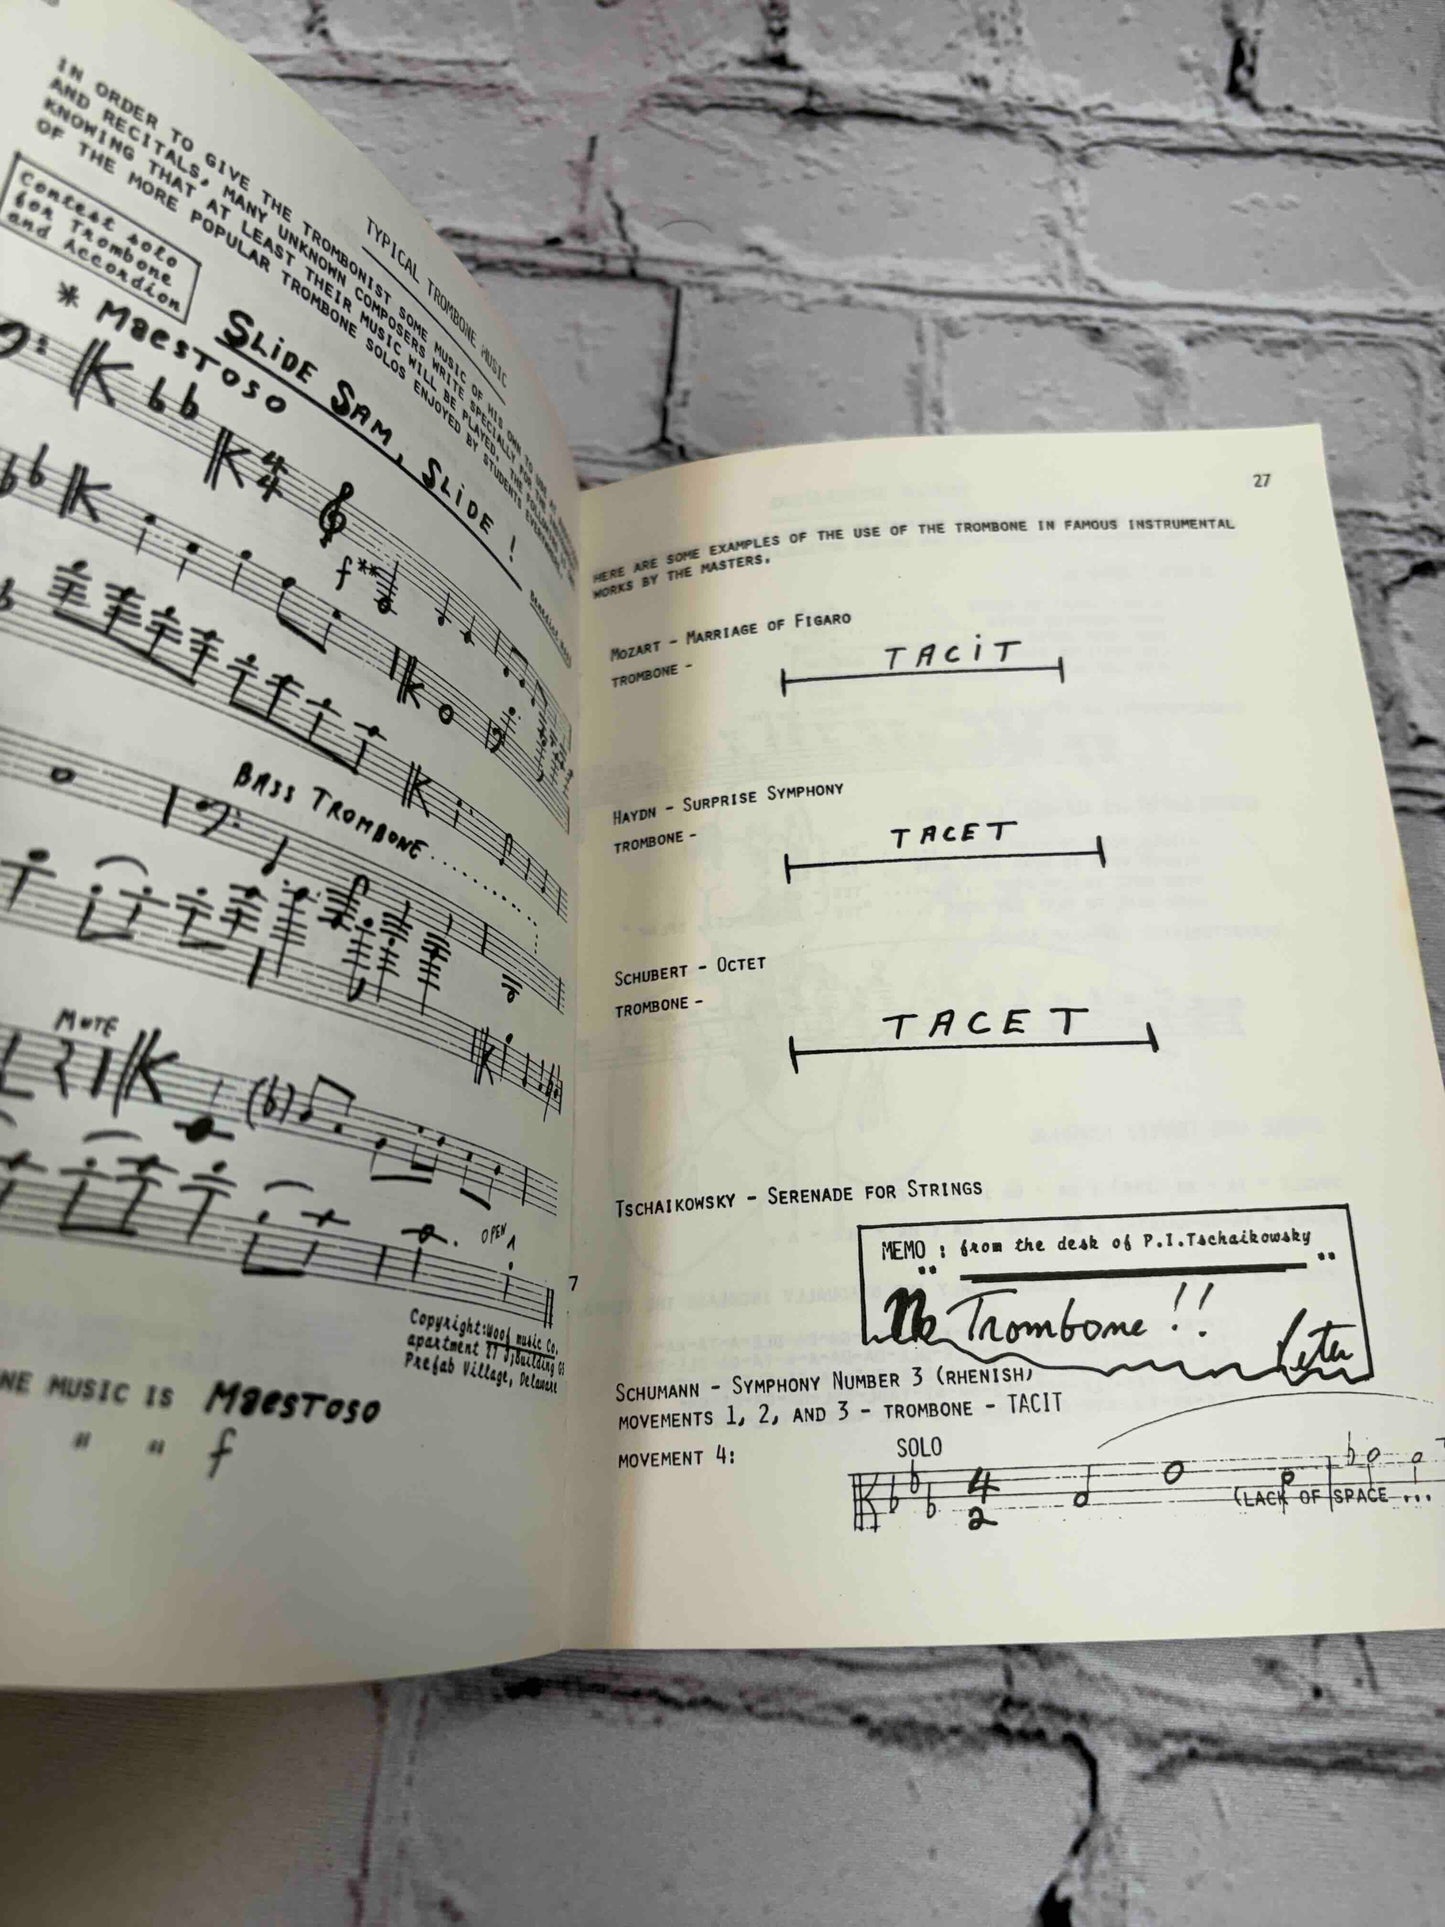 TYPICAL TROMBONE MUSIC
IN ORDER TO GIVE THE TROMBONIST SOME MUSIC OF HIS OWN TO USE AT
AND RECITALS, MANY UNKNOWN COMPOSERS WRITE SPECIALLY FOR THE
KNOWING THAT AT LEAST THEIR MUSIC WILL BE PLAYED. THE FOLLOWING IS
OF THE MORE POPULAR TROMBONE SOLOS ENJOYED BY STUDENTS EVERYWHERE.
Contest solo
for Trombone
and Accordion
SLiDE SAM, SLiDE !
* MaesToso
f **
BASS TROMBONE........
MUTE
OPEN
7
Copyright:Woof music Co.
apartment 17 J;Building
Prefab Village, Delaware
NE MUSIC IS MaesToso
" " f
27
HERE ARE SOME EXAMPLES OF THE USE OF THE TROMBONE IN FAMOUS INSTRUMENTAL
WORKS BY THE MASTERS.
MOZART - MARRIAGE OF FIGARO
TROMBONE - TACiT
HAYDN - SURPRISE SYMPHONY
TROMBONE - TACET
SCHUBERT - OCTET
TROMBONE - TACET
TSCHAIKOWSKY - SERENADE FOR STRINGS
MEMO : from the desk of P.I.Tschaikowsky
No Trombone !!
Peter
SCHUMANN - SYMPHONY NUMBER 3 (RHENISH)
MOVEMENTS 1, 2, AND 3 - TROMBONE - TACIT
MOVEMENT 4:
SOLO
4
2
(LACK OF SPACE ...